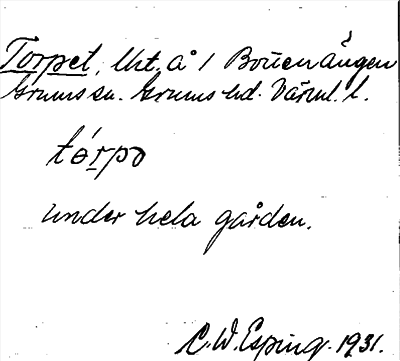 Torpet, Uht. å 1 Bonenängen
Grums sn. Grums hd. Värml. l.
tórpo
under hela gården.
C.W. Esping. 1931.